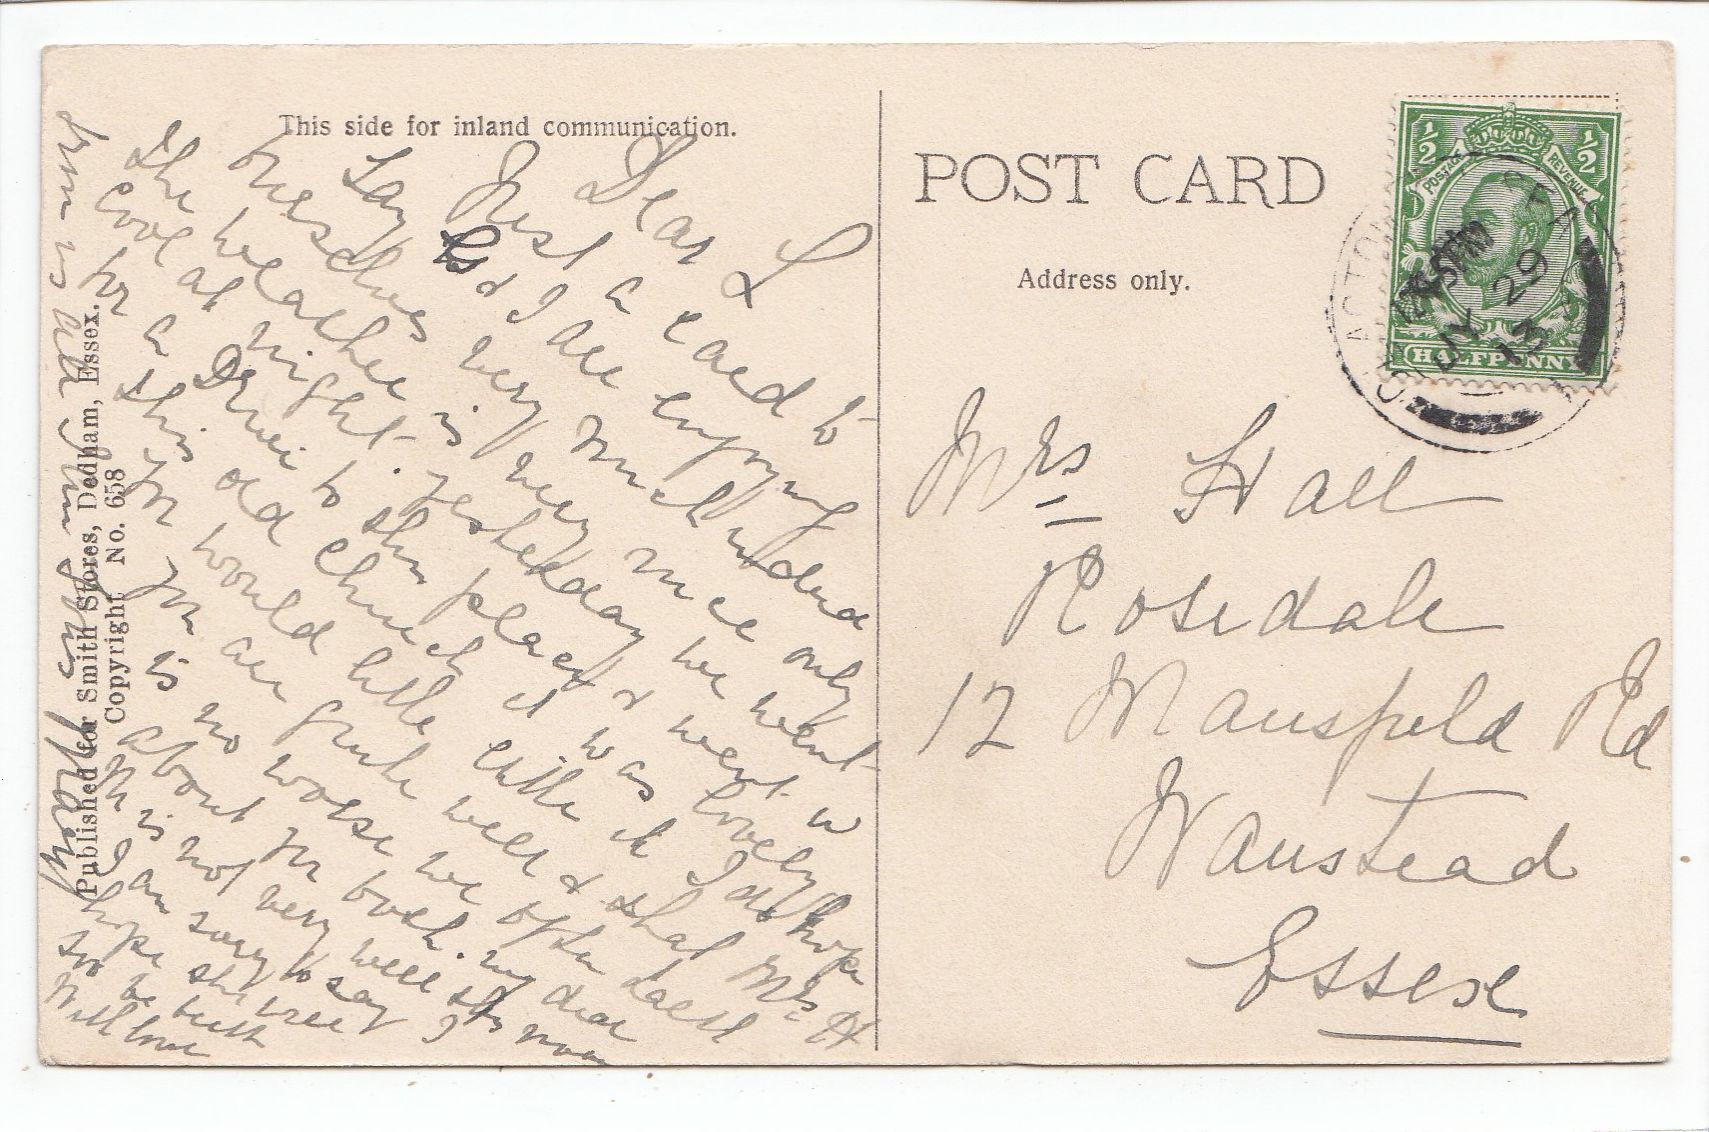 This side for inland communication.
Dear L
Just a card to
say L & I are enjoying
ourselves very much indeed
the weather is very nice only
cool at night. yesterday we went
for a Drive to this place & went in
this old Church it was lovely
you would little it I do hope
you are quite well & that Mrs H
is no worse we often talk
about you both. my dear
M is not very well this
I am sorry to say I
hope she will
soon be better
With love
from us all yours
Published for Smith Stores, Dedham, Essex.
Copyright No. 658
POST CARD
Address only.
POSTAGE REVENUE
½ ½
HALFPENNY
CLACTON SEA
JY 29
13
Mrs Hall
Rosedale
12 Mansfield Rd
Wanstead
Essex